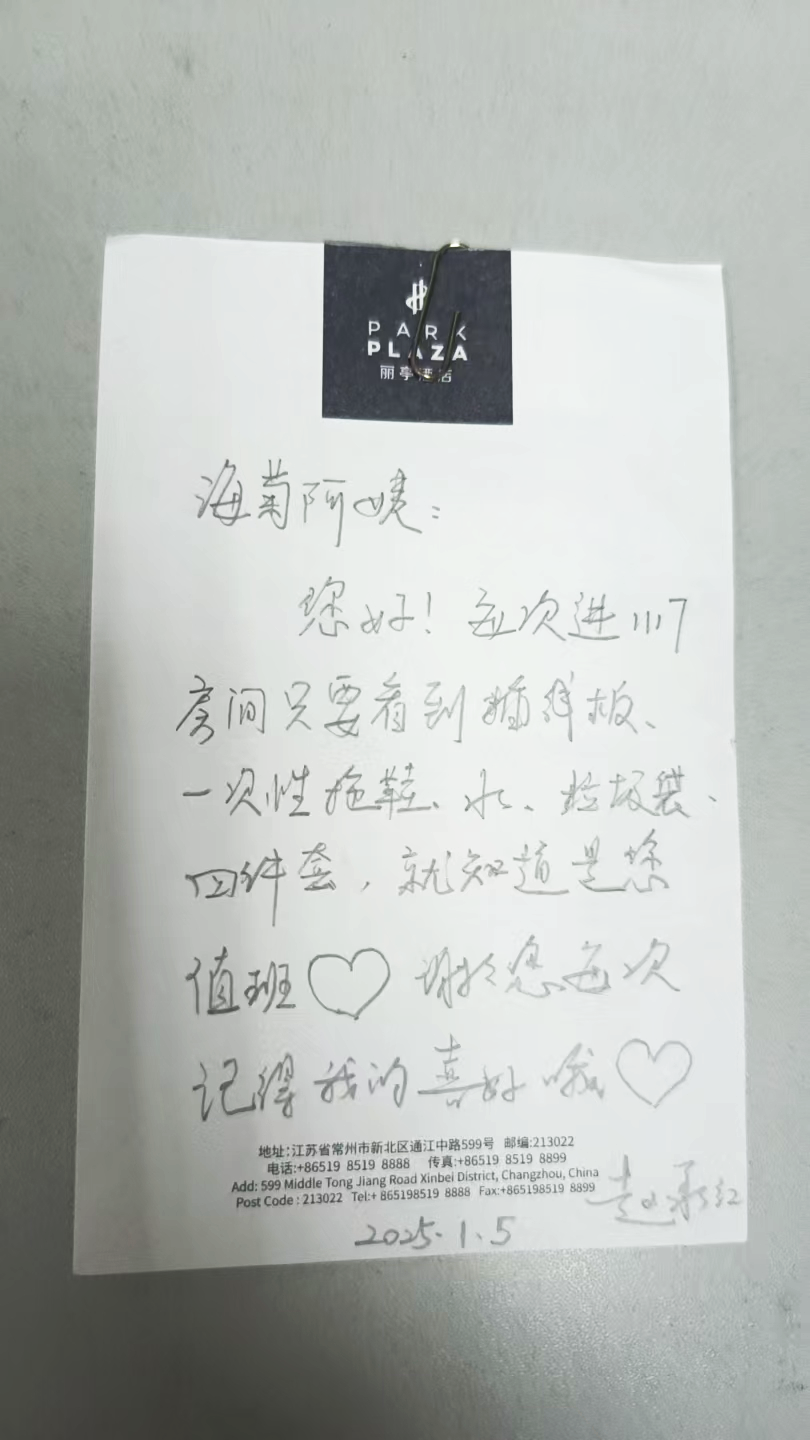 PARK
PLAZA
丽亭酒店
海菊阿姨：
您好！每次进1117
房间只要看到插线板、
一次性拖鞋、水、垃圾袋、
四件套，就知道是您
值班♡ 谢谢您每次
记得我的喜好哦♡
地址:江苏省常州市新北区通江中路599号 邮编:213022
电话:+86519 8519 8888 传真:+86519 8519 8899
Add: 599 Middle Tong Jiang Road Xinbei District, Changzhou, China
Post Code : 213022 Tel:+ 865198519 8888 Fax:+865198519 8899
2025.1.5